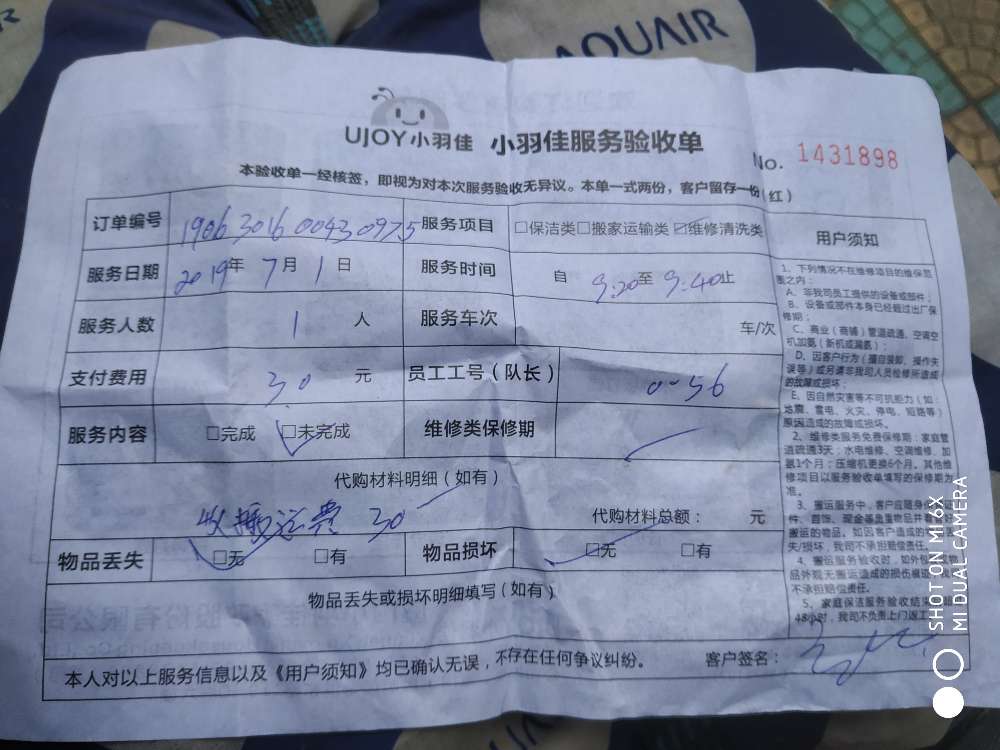 AQUAIR
UJOY小羽佳 小羽佳服务验收单
No. 1431898
本验收单一经核签，即视为对本次服务验收无异议。本单一式两份，客户留存一份(红)
订单编号 1906301600430975 服务项目 □保洁类□搬家运输类☑维修清洗类
服务日期 2019年 7月 1日 服务时间 自 9:20至 9:40止
服务人数 1 人 服务车次 车/次
支付费用 30 元 员工工号（队长） 0-56
服务内容 □完成 ☑未完成 维修类保修期
代购材料明细（如有）
收搬运费 30 代购材料总额： 元
物品丢失 ☑无 □有 物品损坏 ☑无 □有
物品丢失或损坏明细填写（如有）
本人对以上服务信息以及《用户须知》均已确认无误，不存在任何争议纠纷。 客户签名：
用户须知
1、下列情况不在维修项目的维保范
围之内：
A、非我司员工提供的设备或部件；
B、设备或部件本身已经超过出厂保
修期；
C、商业（商铺）管道疏通、空调空
机加氨（新机或漏氨）；
D、因客户行为（擅自装卸、操作失
误等）或另请非我司人员检修所造成
的故障或损坏；
E、因自然灾害等不可抗能力（如：
地震、雷电、火灾、停电、短路等）
原因造成的故障或损坏。
2、维修类服务免费保修期：家庭管
道疏通3天；水电维修、空调维修、加
氨1个月；压缩机更换6个月。其他维
修项目以服务验收单填写的保修期为
准。
3、搬运服务中，客户应随身
件、首饰、现金等贵重物品并
搬运的物品。如因客户造成的
失/损坏，我司不承担赔偿责任。
4、搬运服务验收时，如外包
品外观无搬运造成的损伤痕迹，我
不承担赔偿责任。
5、家庭保洁服务验收结
48小时，我司不负责上门返工
SHOT ON MI 6X
MI DUAL CAMERA